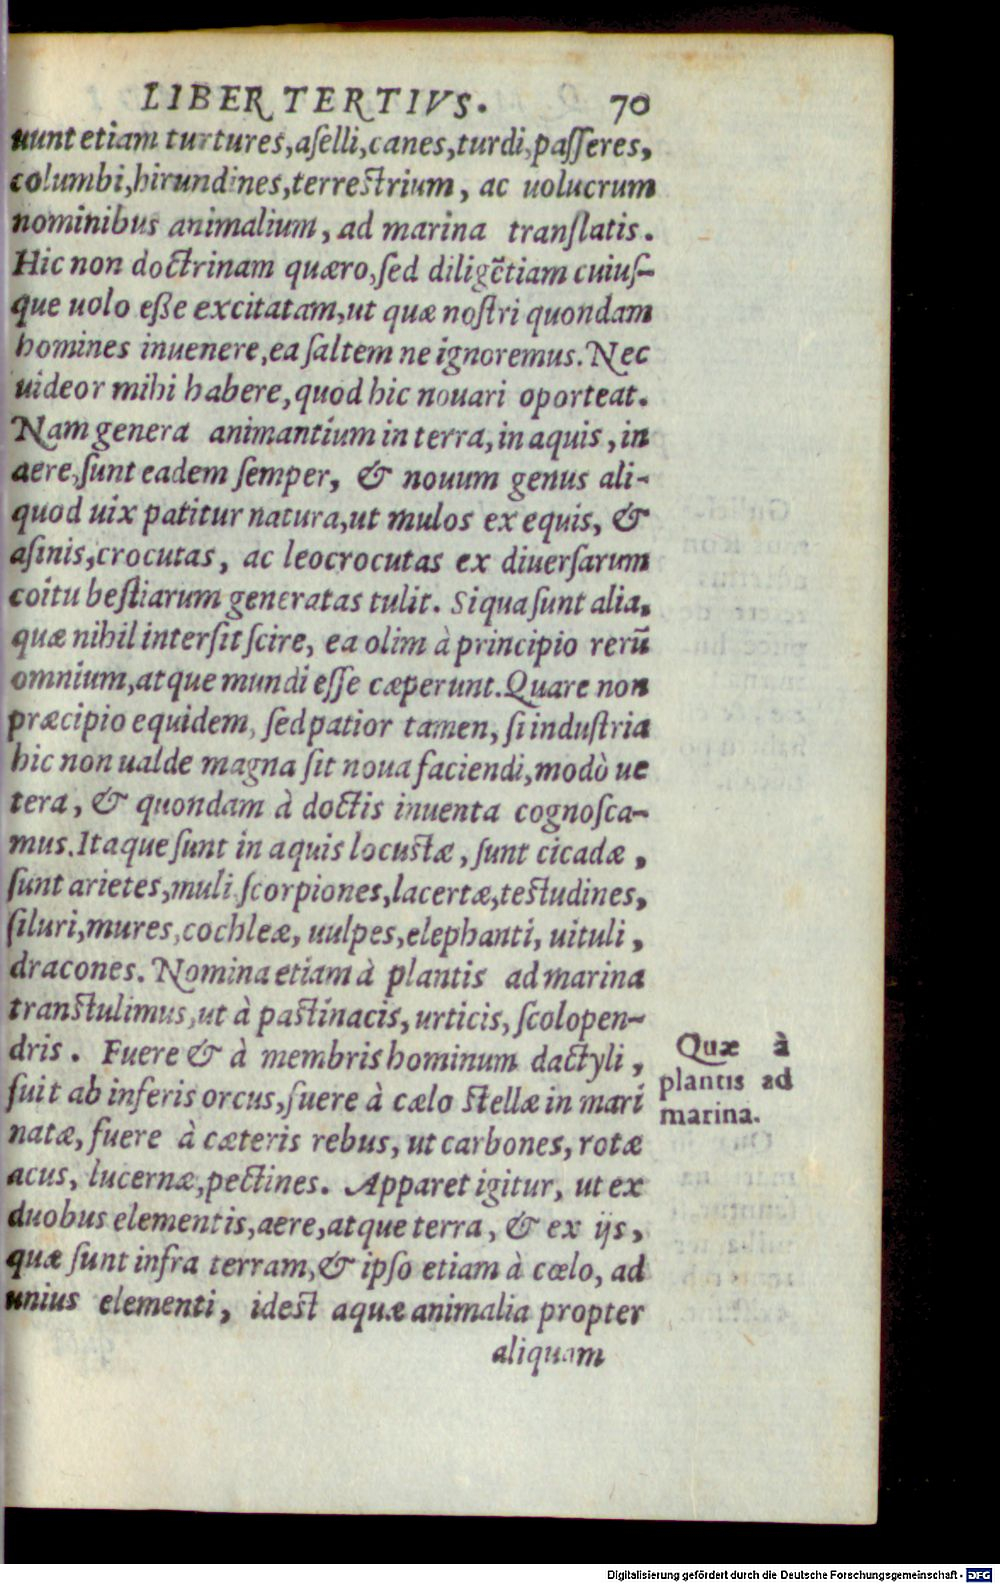 LIBER TERTIVS. 70
uunt etiam turtures, aſelli, canes, turdi, paſſeres,
columbi, hirundines, terreſtrium, ac uolucrum
nominibus animalium, ad marina tranſlatis.
Hic non doctrinam quæro, ſed diligẽtiam cuiuſ-
que uolo eße excitatam, ut quæ noſtri quondam
homines inuenere, ea ſaltem ne ignoremus. Nec
uideor mihi habere, quod hic nouari oporteat.
Nam genera animantium in terra, in aquis, in
aere, ſunt eadem ſemper, & nouum genus ali-
quod uix patitur natura, ut mulos ex equis, &
aſinis, crocutas, ac leocrocutas ex diuerſarum
coitu beſtiarum generatas tulit. Si qua ſunt alia,
quæ nihil interſit ſcire, ea olim à principio rerũ
omnium, atque mundi eſſe cæperunt. Quare non
præcipio equidem, ſed patior tamen, ſi induſtria
hic non ualde magna ſit noua faciendi, modò ue
tera, & quondam à doctis inuenta cognoſca-
mus. Itaque ſunt in aquis locuſtæ, ſunt cicadæ,
ſunt arietes, muli ſcorpiones, lacertæ, teſtudines,
ſiluri, mures, cochleæ, uulpes, elephanti, uituli,
dracones. Nomina etiam à plantis ad marina
tranſtulimus, ut à paſtinacis, urticis, ſcolopen-
dris. Fuere & à membris hominum dactyli,
fuit ab inferis orcus, fuere à cælo ſtellæ in mari
natæ, fuere à cæteris rebus, ut carbones, rotæ
acus, lucernæ, pectines. Apparet igitur, ut ex
duobus elementis, aere, atque terra, & ex ijs,
quæ ſunt infra terram, & ipſo etiam à cœlo, ad
unius elementi, ideſt aquæ animalia propter
aliquam
Quæ à
plantis ad
marina.
Digitalisierung gefördert durch die Deutsche Forschungsgemeinschaft - DFG